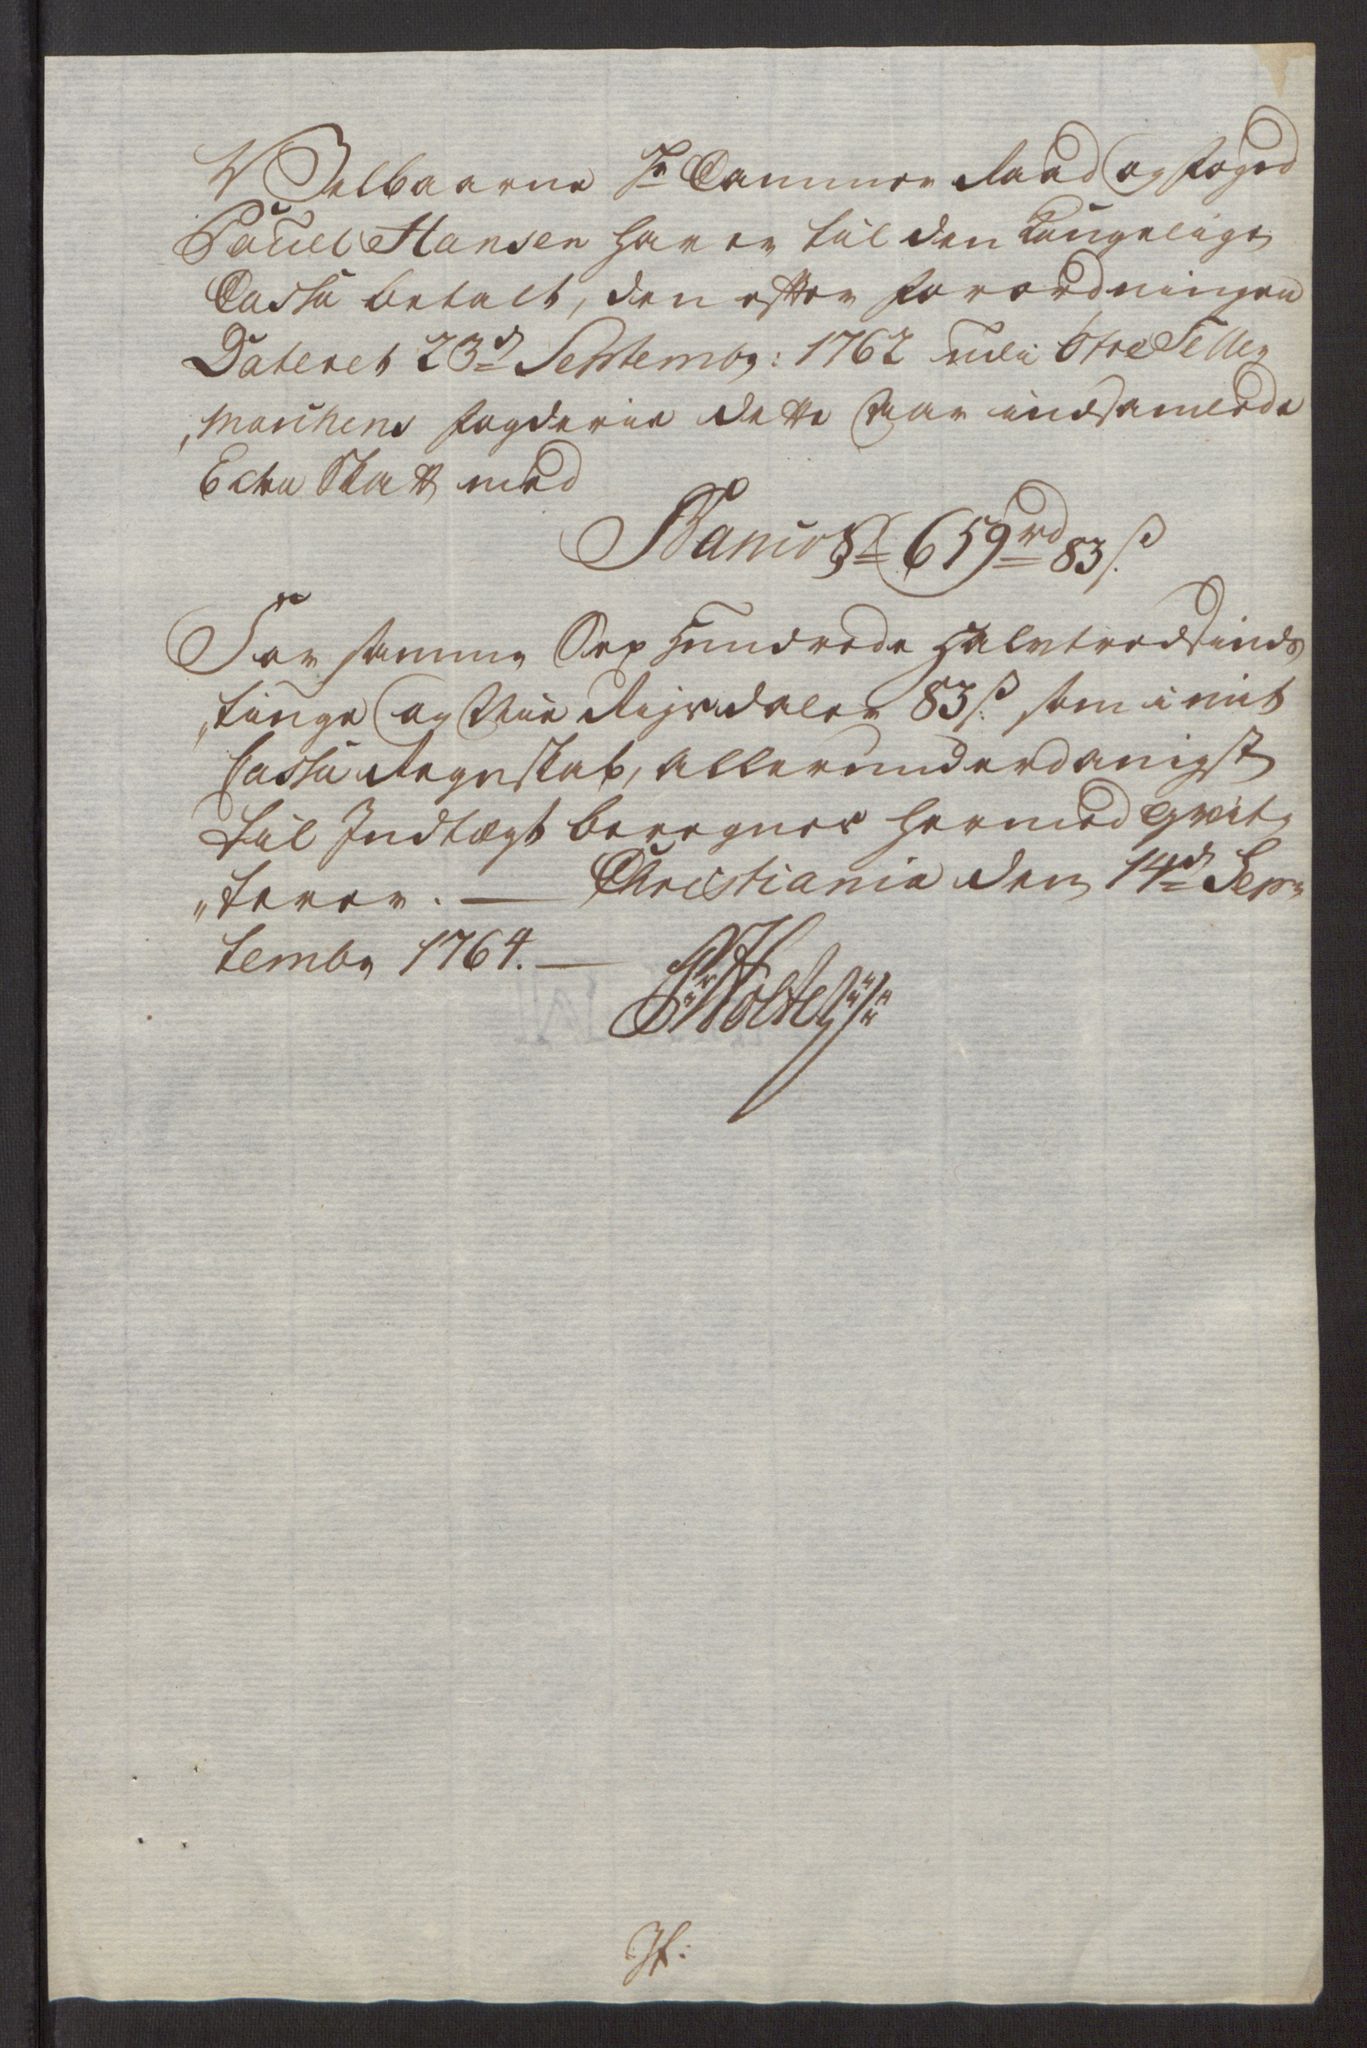 Velbaarne Hr Cammer Raad og foged
Pouel Hansen haver til den Kongelige
Cassa betalt, den efter forordningen
Dateret 23d Septembr: 1762 udi Øvre Telle
„marchens fogderie dette Aar indsamlede
Extra Skatt med
659 rd 83 s.
For samme Sex Hundrede Halvtredsinds
„tiuge og Nie Rigsdaler 83 s. som i mit
Cassa Regnskab, allerunderdanigst
til Indtægt beregnes hermed qvit
„terer. — Christiania den 14d Sep
tembr 1764. —
Holte